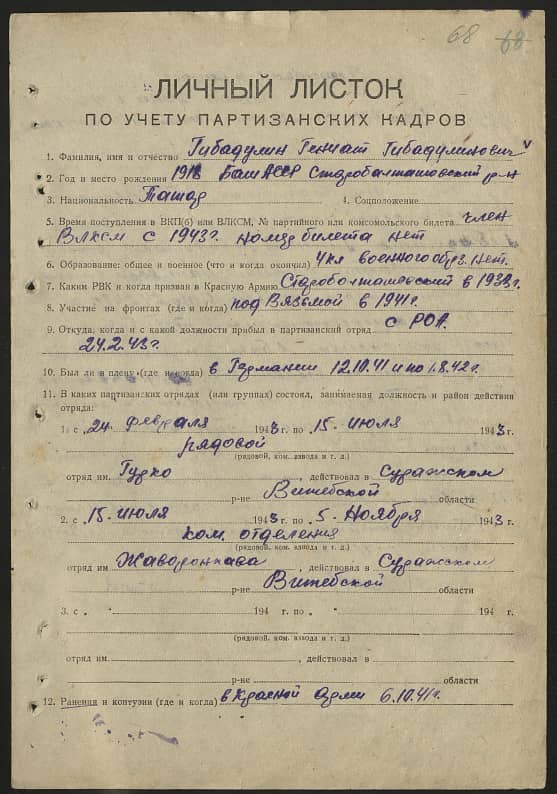 68 68
ЛИЧНЫЙ ЛИСТОК
ПО УЧЕТУ ПАРТИЗАНСКИХ КАДРОВ
1. Фамилия, имя и отчество Гибадулин Гениат Гибадулинович
2. Год и место рождения 1918 БашАССР Старобалташовский р-н
3. Национальность Татар 4. Соцположение
5. Время поступления в ВКП(б) или ВЛКСМ, № партийного или комсомольского билета член
ВЛКСМ с 1943г. номер билета нет
6. Образование: общее и военное (что и когда окончил) 4 кл военного обр. нет.
7. Каким РВК и когда призван в Красную Армию Старобалташевский в 1939г.
8. Участие на фронтах (где и когда) под Вязьмой в 1941г.
9. Откуда, когда и с какой должности прибыл в партизанский отряд с РОА.
24.2.43г.
10. Был ли в плену (где и когда) в Германии 12.10.41 и по 1.8.42г.
11. В каких партизанских отрядах (или группах) состоял, занимаемая должность и район действия
отряда:
1. с „24. февраля 1943 г. по „15. июля 1943 г.
рядовой
(рядовой, ком. взвода и т. д.)
отряд им. Гудко, действовал в Суражском
р-не Витебской области
2. с „15. июля 1943 г. по „5. Ноября 1943
ком. отделения
(рядовой, ком. взвода и т. д.)
отряд им Жаворонкава, действовал в Суражском
Витебской
р-не области
3. с „ 194 г. по „ 194 г.
(рядовой, ком. взвода и т. д.)
отряд им. , действовал в
р-не области
12. Ранения и контузии (где и когда) в Красной Арми 6.10.41г.